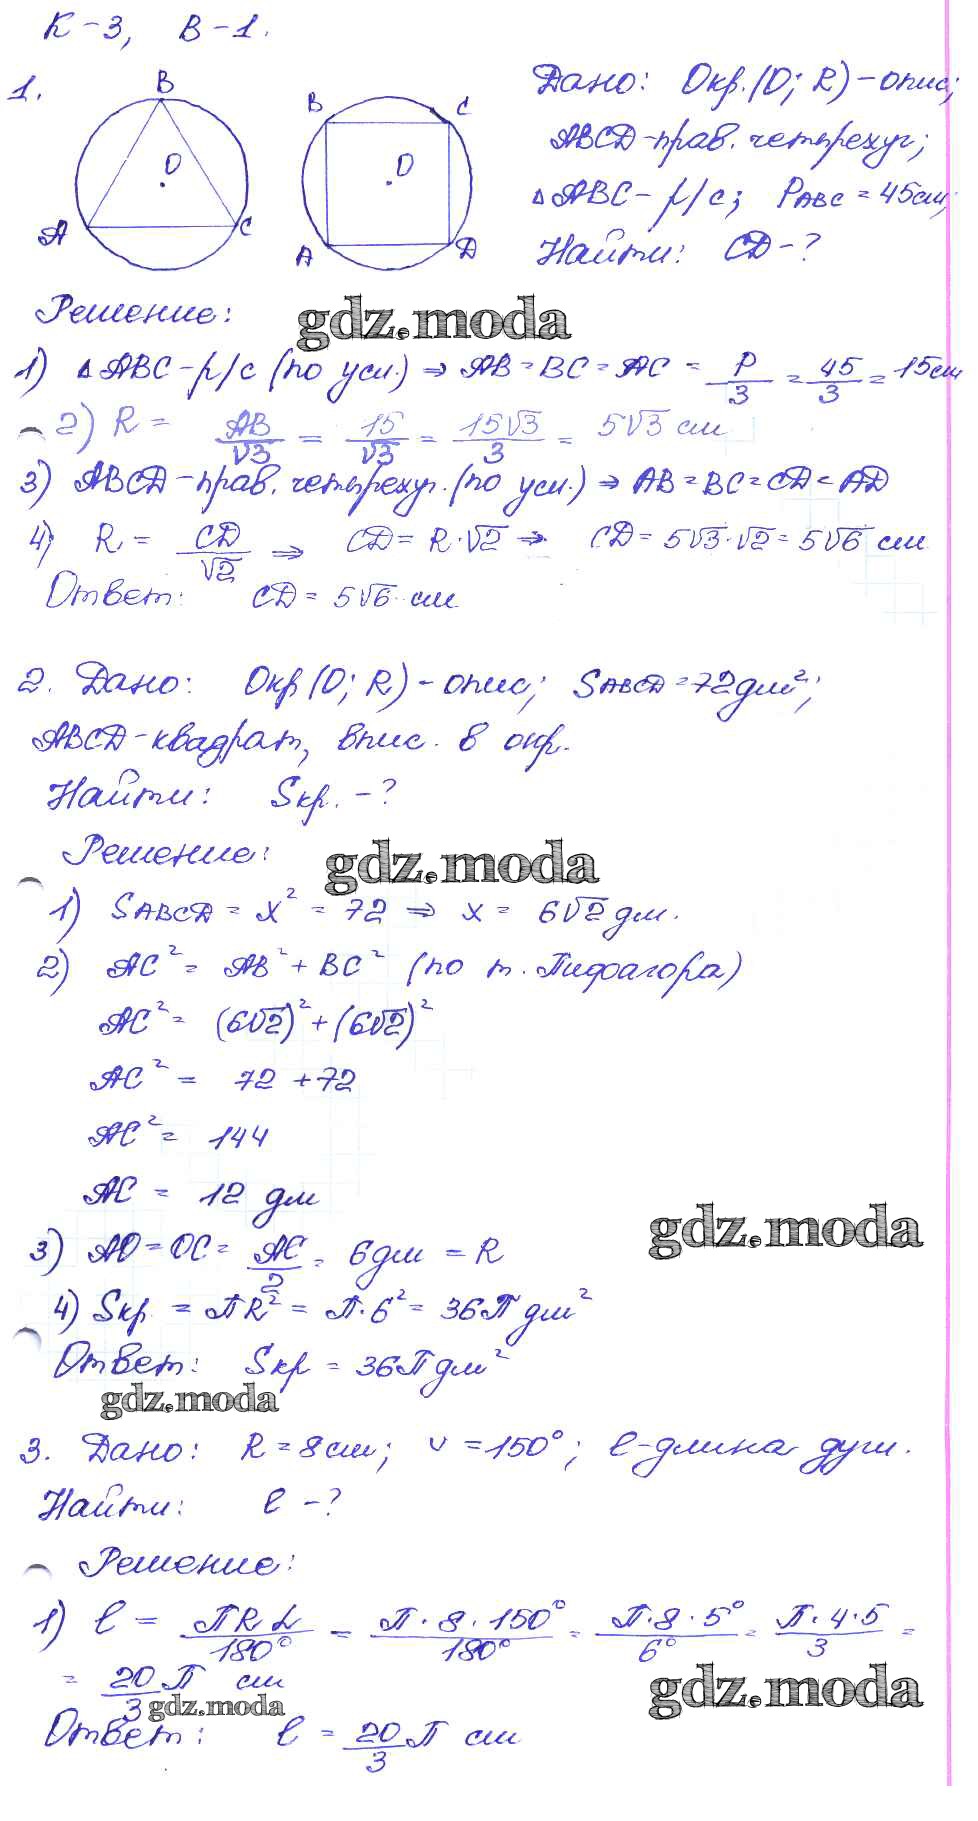 К-3, В-1.
1.
B
O
A
C
B
C
O
A
D
Дано: Окр.(O; R)-опис;
ABCD-прав. четырехуг;
△ABC-р/с; PABC=45см;
Найти: CD-?
Решение:
gdz.moda
1) △ABC-р/с (по усл.) ⇒ AB=BC=AC = P/3 = 45/3 = 15см
2) R = AB/√3 = 15/√3 = 15√3/3 = 5√3 см
3) ABCD-прав. четырехуг. (по усл.) ⇒ AB=BC=CD=AD
4) R = CD/√2 ⇒ CD=R·√2 ⇒ CD=5√3·√2=5√6 см
Ответ: CD=5√6 см
2. Дано: Окр(O; R)-опис; SABCD=72дм²;
ABCD-квадрат, впис. в окр.
Найти: Sкр.-?
Решение:
gdz.moda
1) SABCD = x² = 72 ⇒ x = 6√2 дм.
2) AC² = AB² + BC² (по т. Пифагора)
AC² = (6√2)² + (6√2)²
AC² = 72 + 72
AC² = 144
AC = 12 дм
gdz.moda
3) AO=OC= AC/2 = 6дм = R
4) Sкр = ПR² = П·6² = 36П дм²
Ответ: Sкр = 36П дм²
gdz.moda
3. Дано: R=8см; ∪=150°; l-длина дуги.
Найти: l-?
Решение:
1) l = ПRL/180° = П·8·150°/180° = П·8·5°/6° = П·4·5/3 =
= 20/3 П см
gdz.moda
gdz.moda
Ответ: l = 20/3 П см